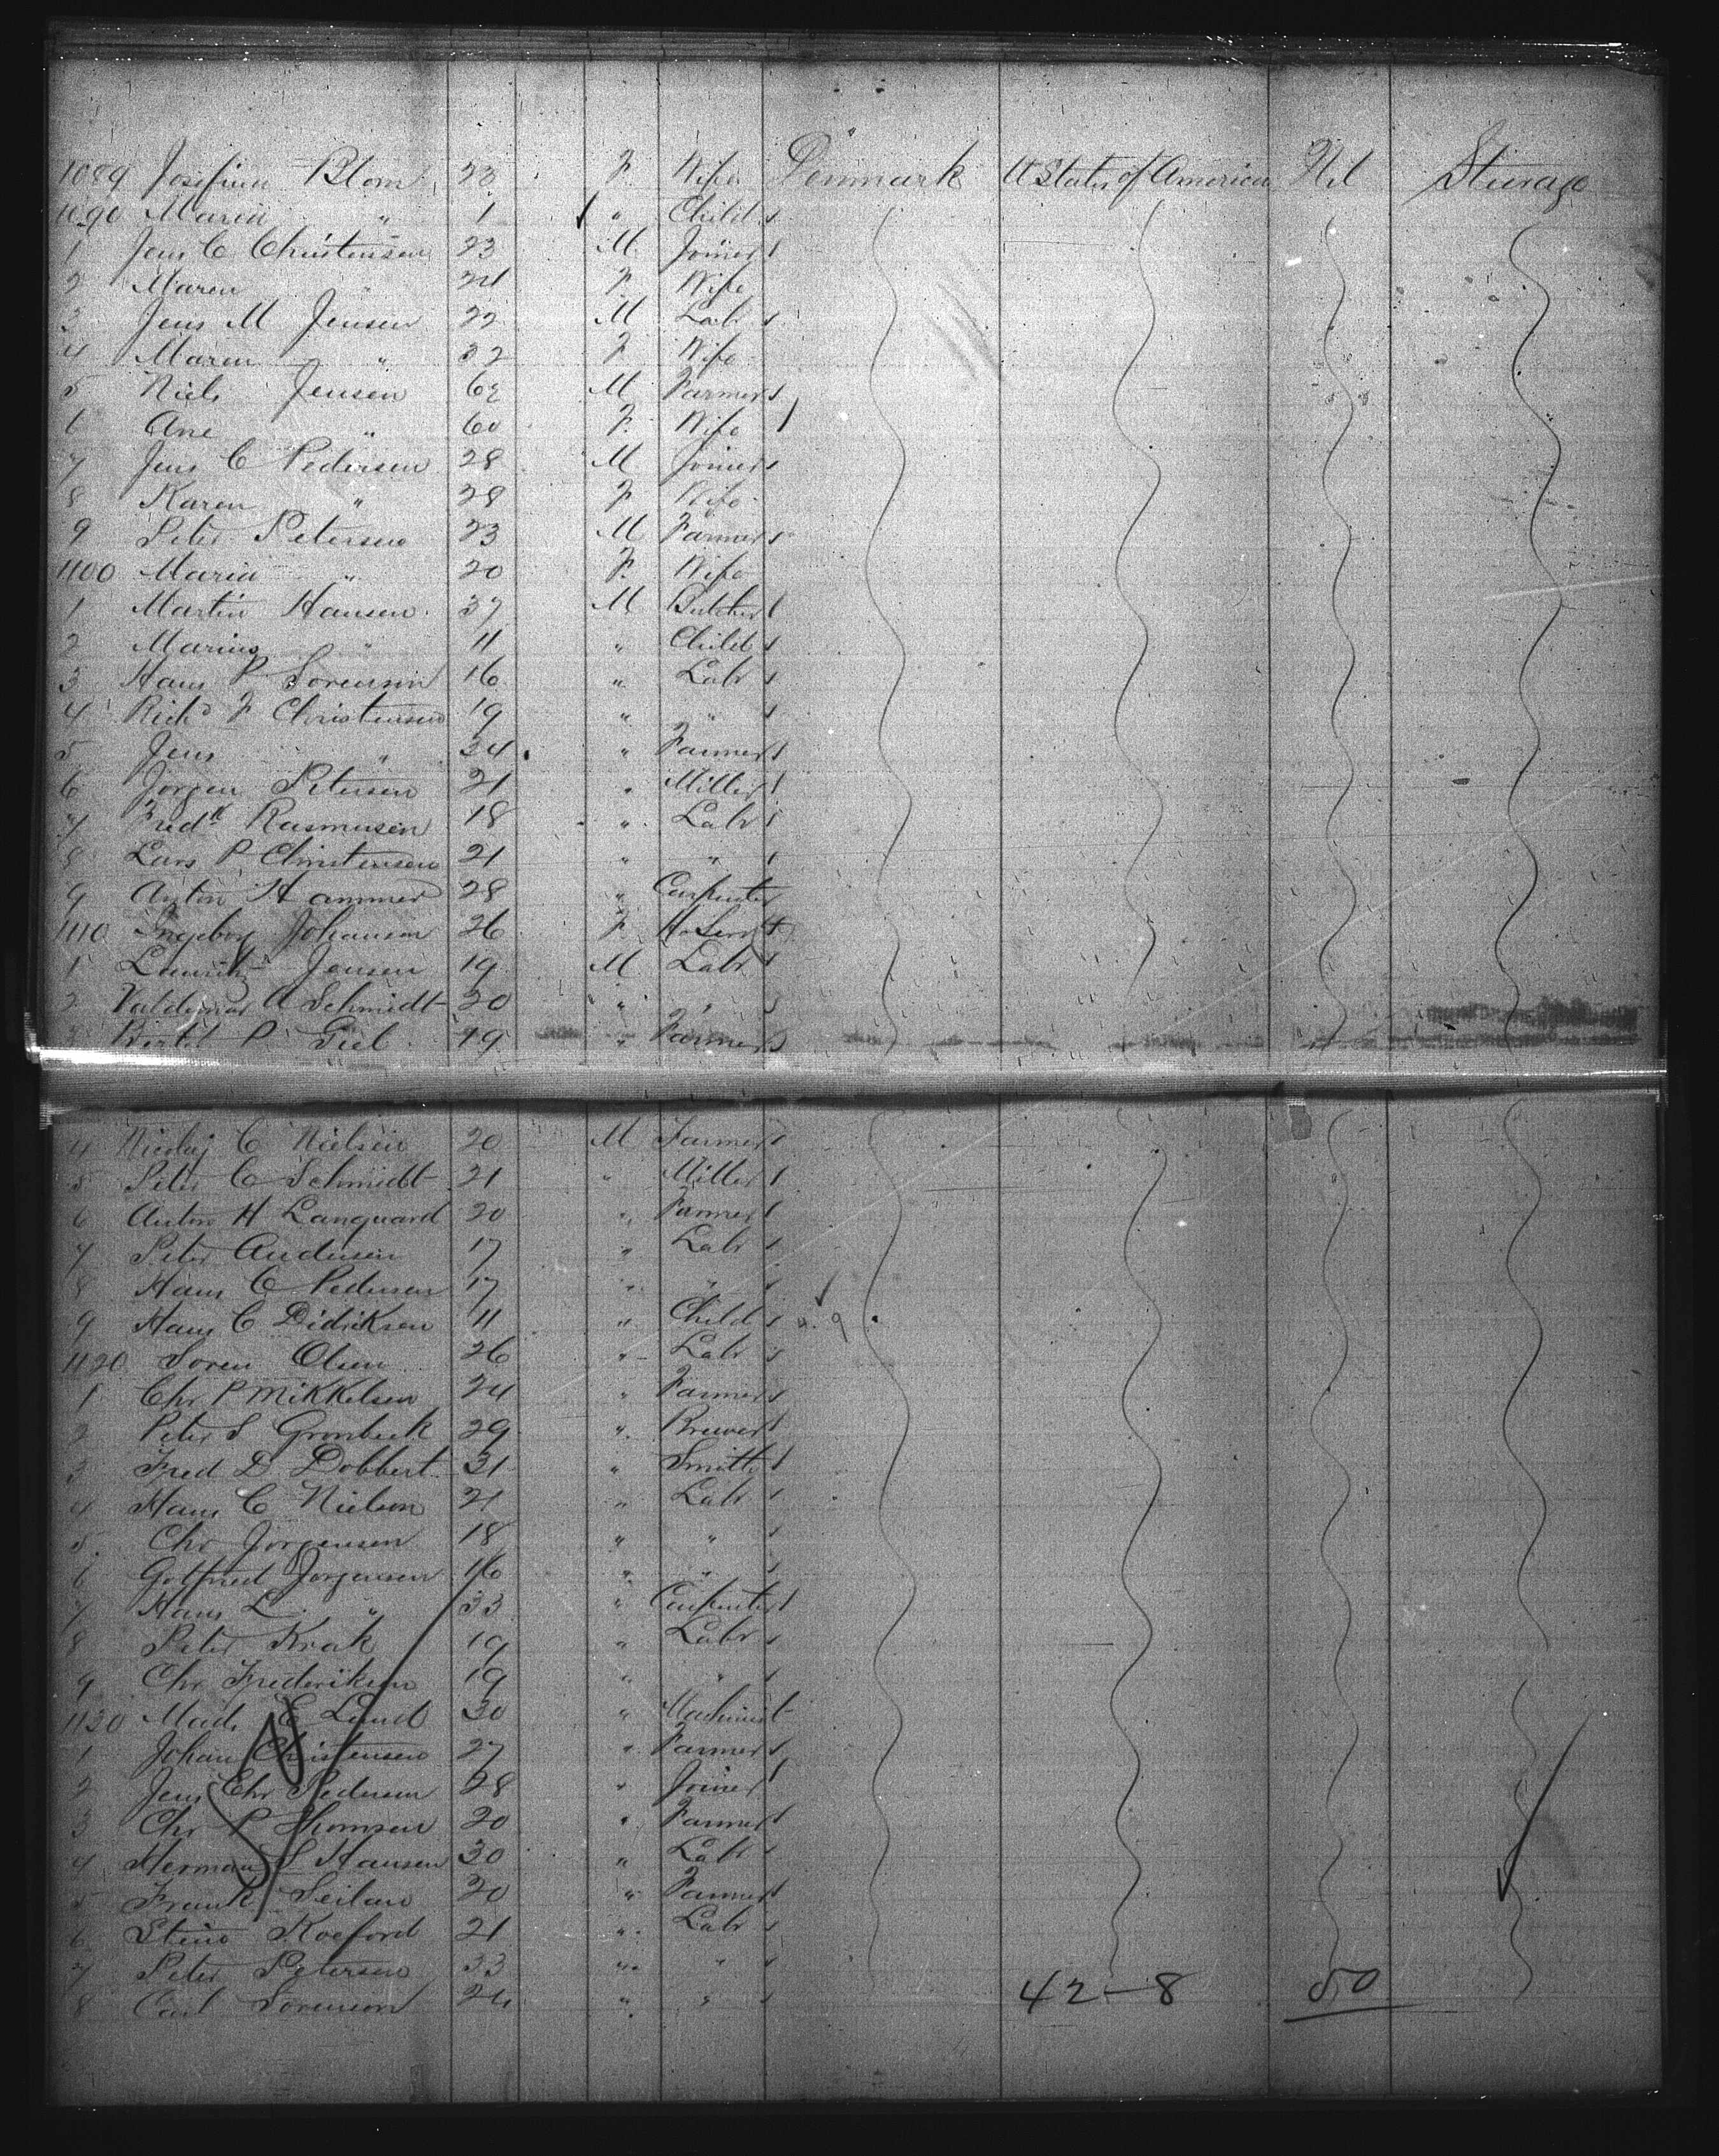 1089 Josefina Blom 23 F. Wife Denmark U States of America Nil Steerage
1090 Maria " 1 " Child
1 Jens C Christensen 23 M Joiner
2 Maren " 24 F Wife
3 Jens M Jensen 22 M Labr
4 Maren " 32 F. Wife
5 Niels Jensen 62 M Farmer
6 Ane " 60 F. Wife
7 Jens C Pedersen 28 M Joiner
8 Karen " 28 F Wife
9 Peter Petersen 23 M Farmer
1100 Maria " 20 F. Wife
1 Martin Hansen 37 M Butcher
2 Marius " 11 " Child
3 Hans P Sorensen 16 " Labr
4 Richd F Christensen 19 " "
5 Jens " 24 " Farmer
6 Jorgen Petersen 21 " Miller
7 Fredk Rasmusen 18 " Labr
8 Lars P Christensen 21 " "
9 Anton Hammer 28 " Carpenter
1110 Ingeborg Johansen 26 F. H. Servt
1 Lauritz Jensen 19 M Labr
2 Valdemar A Schmidt 20 " "
3 Bertel P 19 " Farmer
4 Nicolaj C Nielsen 20 M Farmer
5 Peter C Schmidt 21 " Miller
6 Anton H Languard 20 " Farmer
7 Peter Andersen 17 " Labr
8 Hans C Pedersen 17 " "
9 Hans C Didriksen 11 " Child 9
1120 Soren Olsen 26 " Labr
1 Chr P Mikkelsen 24 " Farmer
2 Peter S Gronbeck 29 " Brewer
3 Fred D Dobbert 31 " Smith
4 Hans C Nielsen 21 " Labr
5 Chr Jorgensen 18 " "
6 Gotfried Jorgensen 16 " "
7 Hans L " 33 " Carpenter
8 Peter Krak 19 " Labr
9 Chr Frederiksen 19 " "
1130 Mads E Lund 30 " Machinist
1 Johan Christensen 27 " Farmer
2 Jens Chr Pedersen 28 " Joiner
3 Chr P Thomsen 20 " Farmer
4 Herman S Hansen 30 " Labr
5 Frank 20 " Farmer
6 Koeford 21 " Labr
7 Peter Petersen 33 " "
8 Carl Sorenson 24 " "
42-8 50